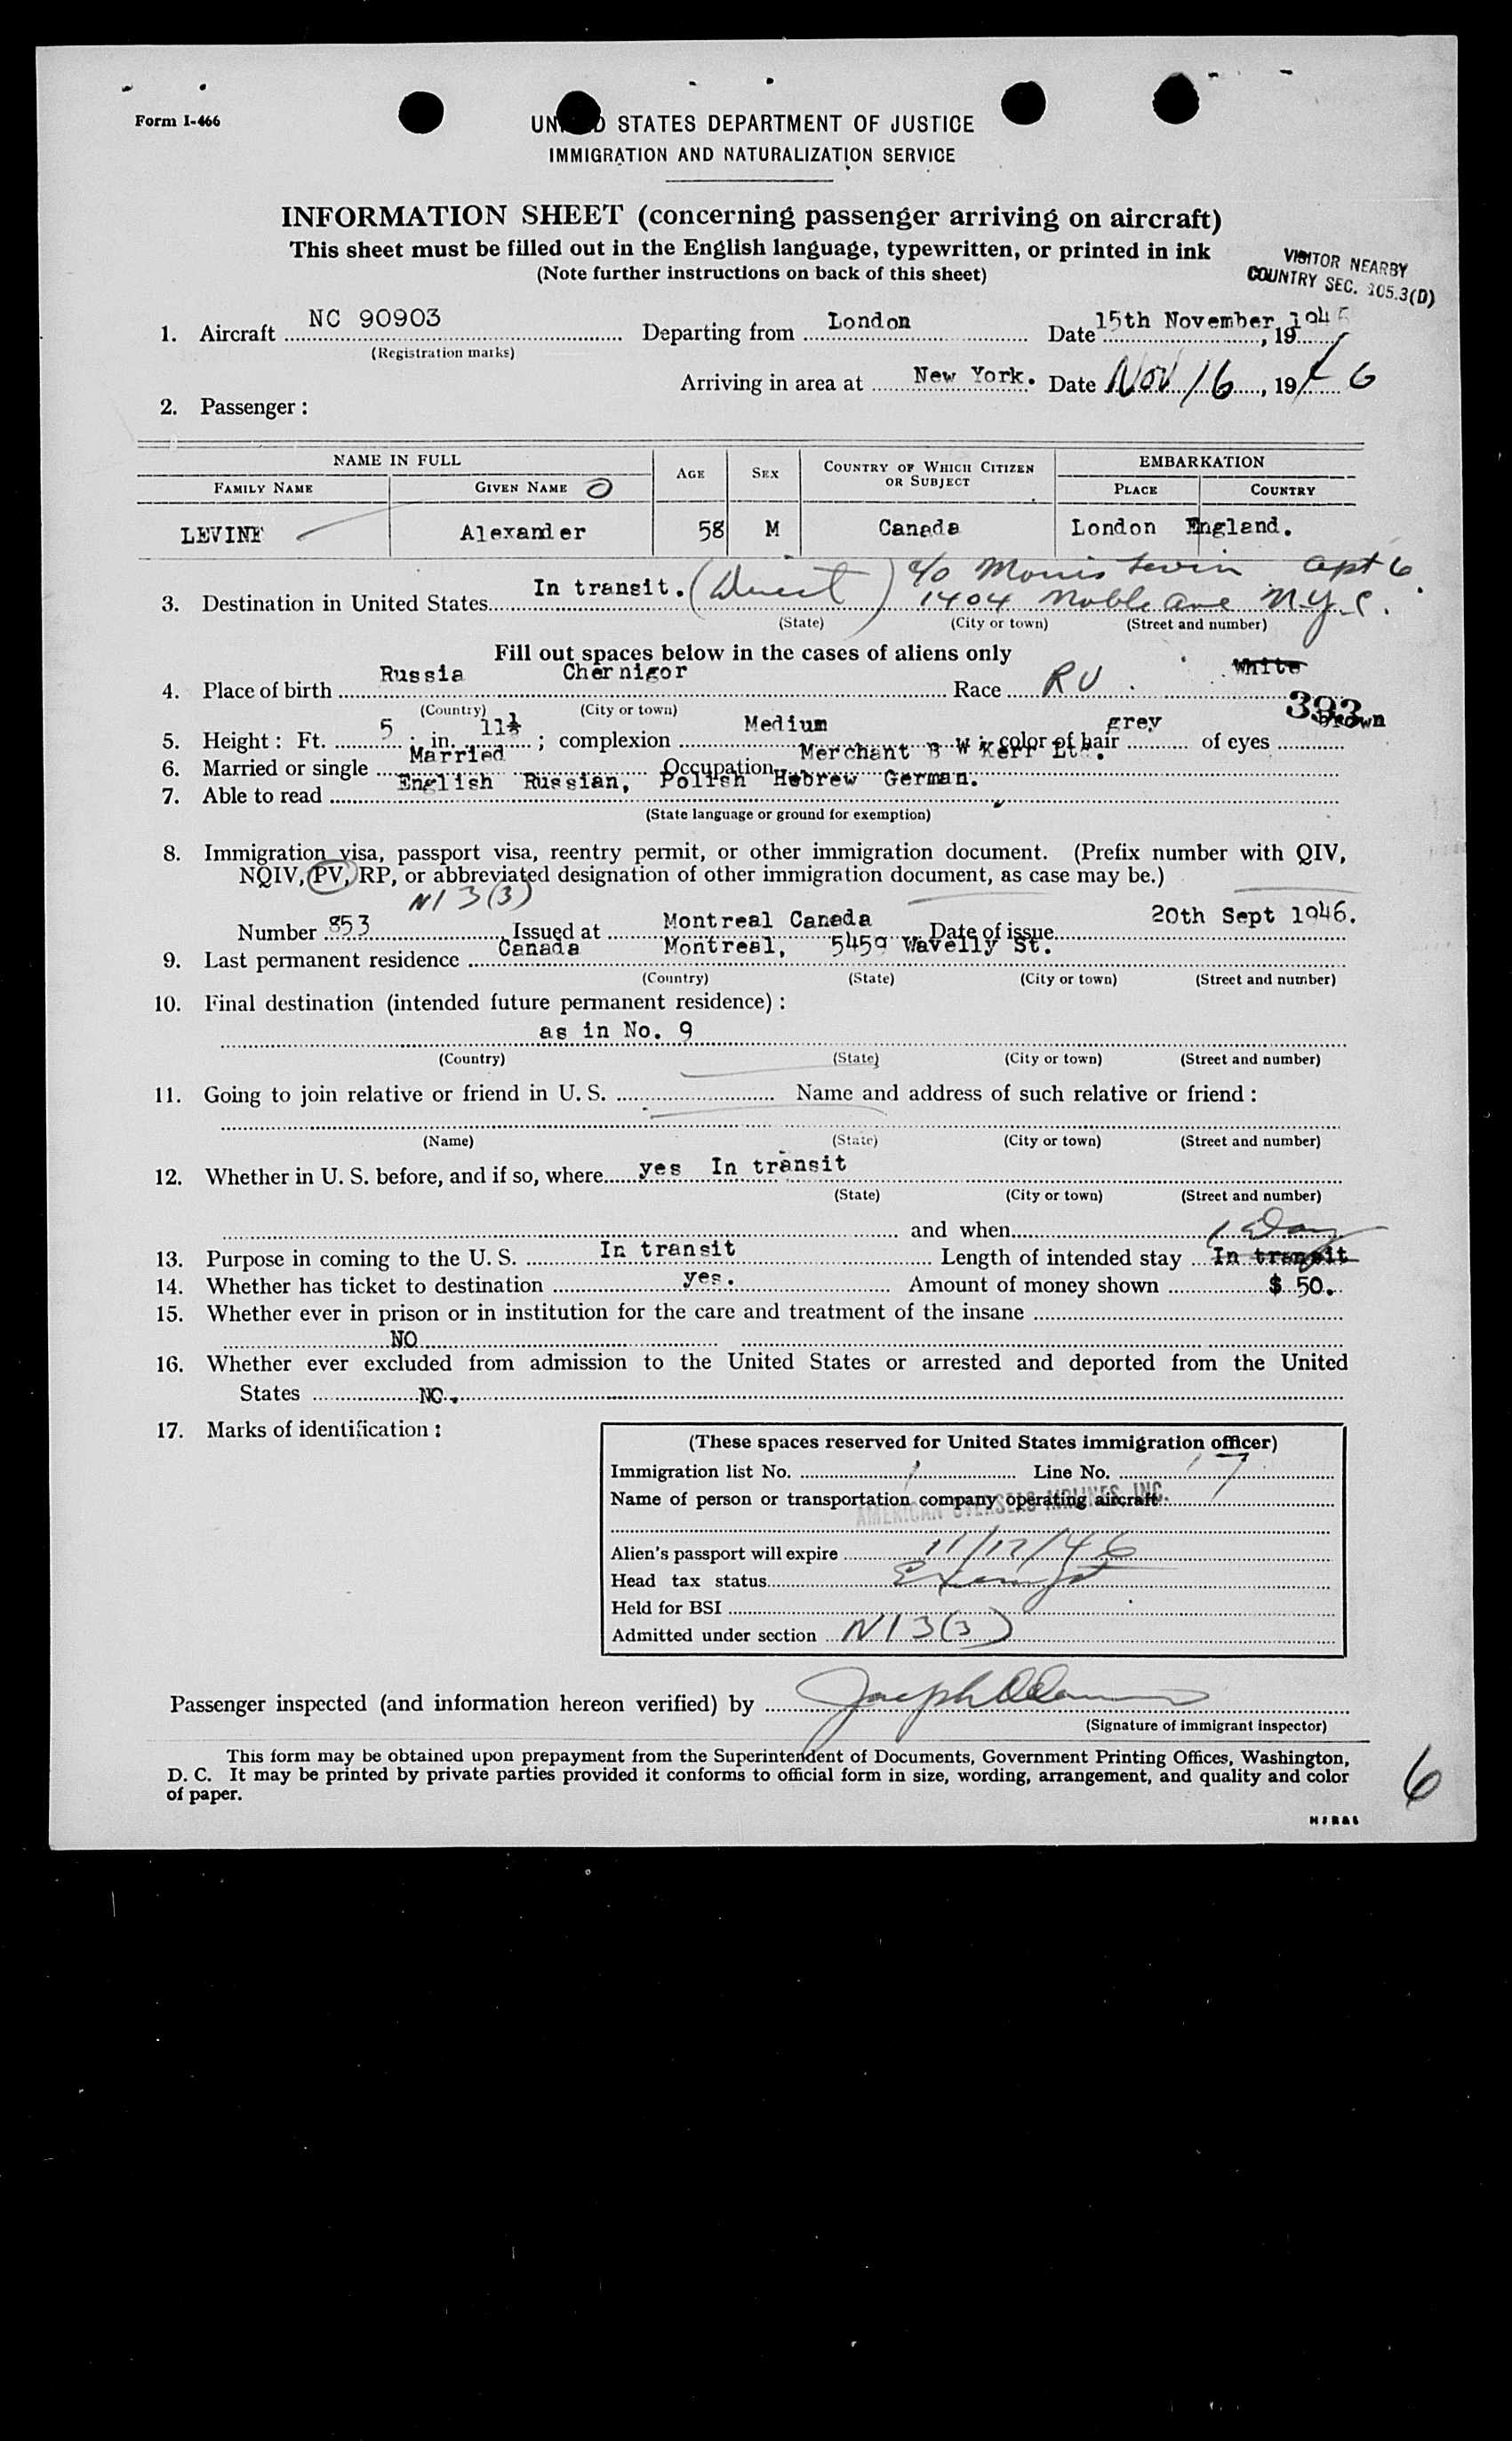 Form I-466
UNITED STATES DEPARTMENT OF JUSTICE
IMMIGRATION AND NATURALIZATION SERVICE
INFORMATION SHEET (concerning passenger arriving on aircraft)
This sheet must be filled out in the English language, typewritten, or printed in ink
(Note further instructions on back of this sheet)
VISITOR NEARBY
COUNTRY SEC. 105.3(D)
1. Aircraft NC 90903 Departing from London Date 15th November, 19 1946
(Registration marks)
Arriving in area at New York. Date Nov 16, 1946
2. Passenger:
NAME IN FULL AGE SEX COUNTRY OF WHICH CITIZEN OR SUBJECT EMBARKATION
FAMILY NAME GIVEN NAME PLACE COUNTRY
LEVINE Alexander 58 M Canada London England.
3. Destination in United States In transit. (Direct) c/o Morris Levin Apt 6
1404 Noble Ave N.Y.C.
(State) (City or town) (Street and number)
Fill out spaces below in the cases of aliens only
4. Place of birth Russia Chernigor Race RU White
(Country) (City or town)
393
5. Height: Ft. 5 in. 11½; complexion Medium; color of hair grey of eyes Brown
6. Married or single Married Occupation Merchant B W Kerr Lt.
7. Able to read English Russian, Polish Hebrew German.
(State language or ground for exemption)
8. Immigration visa, passport visa, reentry permit, or other immigration document. (Prefix number with QIV,
NQIV, PV, RP, or abbreviated designation of other immigration document, as case may be.)
N1 3(3)
Number 853 Issued at Montreal Canada Date of issue 20th Sept 1946.
9. Last permanent residence Canada Montreal, 5459 Wavelly St.
(Country) (State) (City or town) (Street and number)
10. Final destination (intended future permanent residence):
as in No. 9
(Country) (State) (City or town) (Street and number)
11. Going to join relative or friend in U. S. Name and address of such relative or friend:
(Name) (State) (City or town) (Street and number)
12. Whether in U. S. before, and if so, where yes In transit
(State) (City or town) (Street and number)
and when
1 Day
13. Purpose in coming to the U. S. In transit Length of intended stay In transit
14. Whether has ticket to destination yes. Amount of money shown $ 50.
15. Whether ever in prison or in institution for the care and treatment of the insane
NO
16. Whether ever excluded from admission to the United States or arrested and deported from the United
States NO.
17. Marks of identification:
(These spaces reserved for United States immigration officer)
Immigration list No. 1 Line No. 7
Name of person or transportation company operating aircraft
AMERICAN OVERSEAS AIRLINES, INC.
Alien's passport will expire 11/17/46
Head tax status Exempt
Held for BSI
Admitted under section N1 3(3)
Passenger inspected (and information hereon verified) by
(Signature of immigrant inspector)
This form may be obtained upon prepayment from the Superintendent of Documents, Government Printing Offices, Washington,
D. C. It may be printed by private parties provided it conforms to official form in size, wording, arrangement, and quality and color
of paper.
6